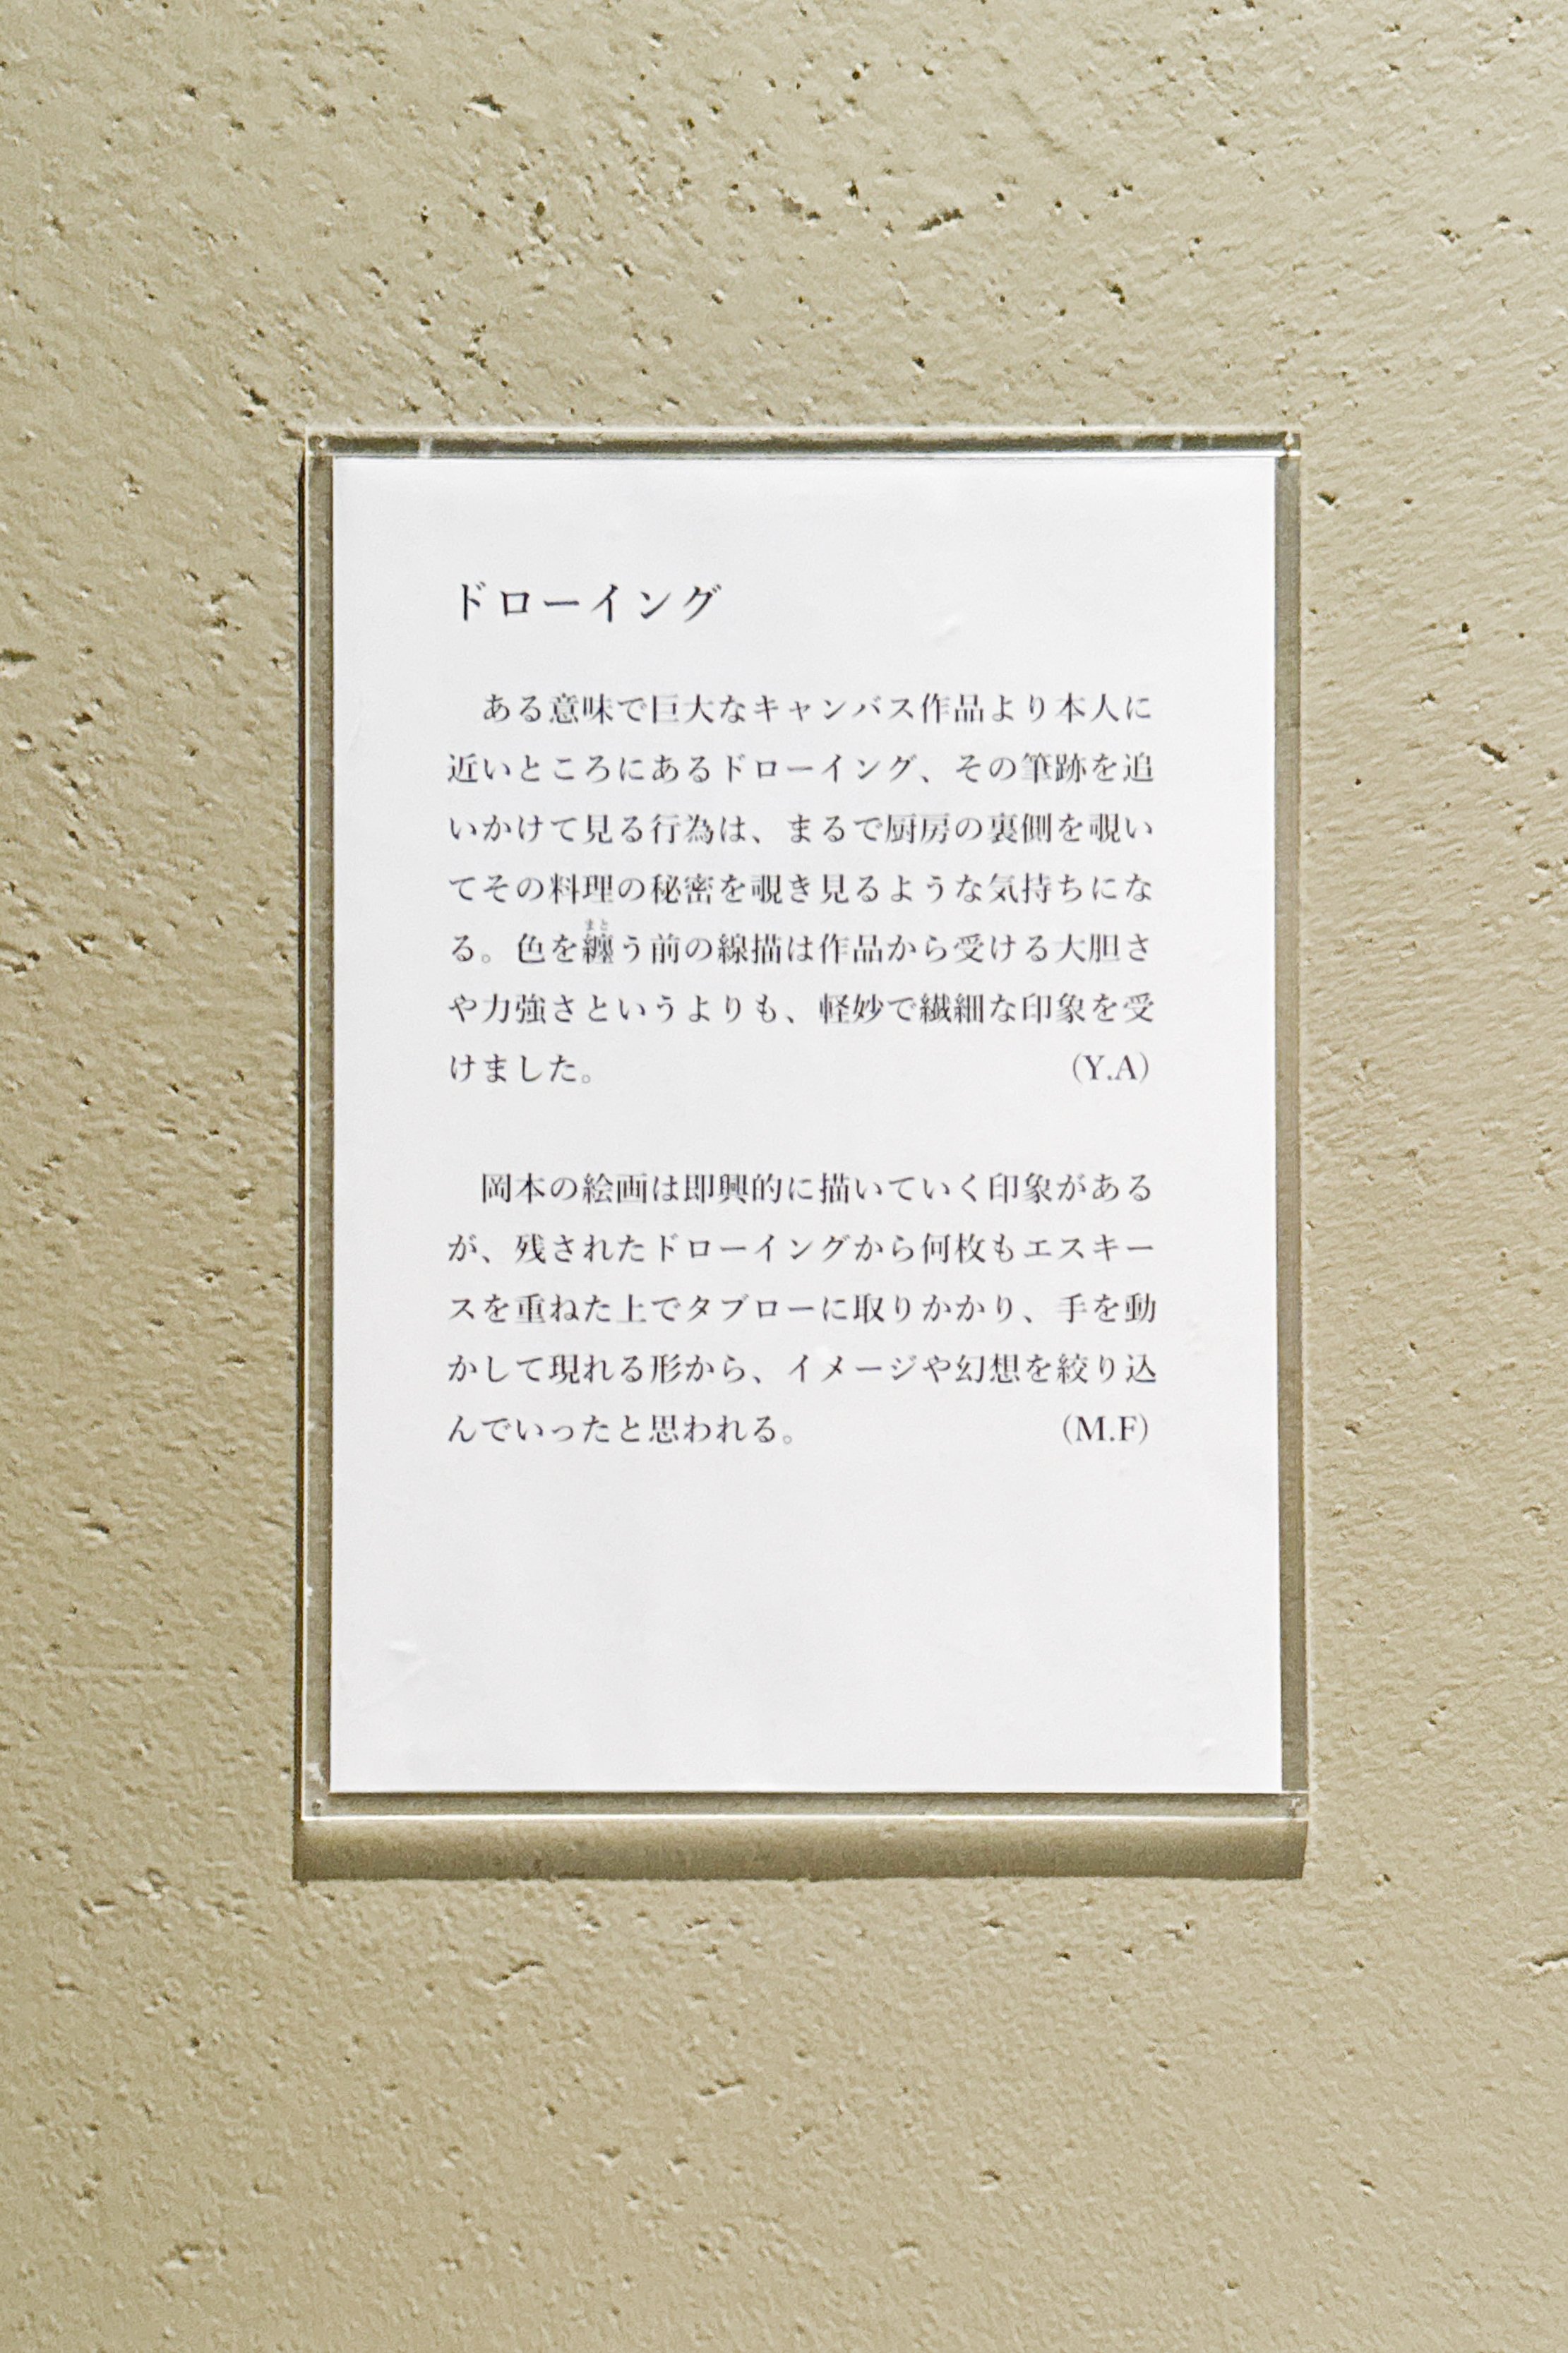 ドローイング
ある意味で巨大なキャンバス作品より本人に
近いところにあるドローイング、その筆跡を追
いかけて見る行為は、まるで厨房の裏側を覗い
てその料理の秘密を覗き見るような気持ちにな
まと
る。色を纏う前の線描は作品から受ける大胆さ
や力強さというよりも、軽妙で繊細な印象を受
けました。 (Y.A)
岡本の絵画は即興的に描いていく印象がある
が、残されたドローイングから何枚もエスキー
スを重ねた上でタブローに取りかかり、手を動
かして現れる形から、イメージや幻想を絞り込
んでいったと思われる。 (M.F)